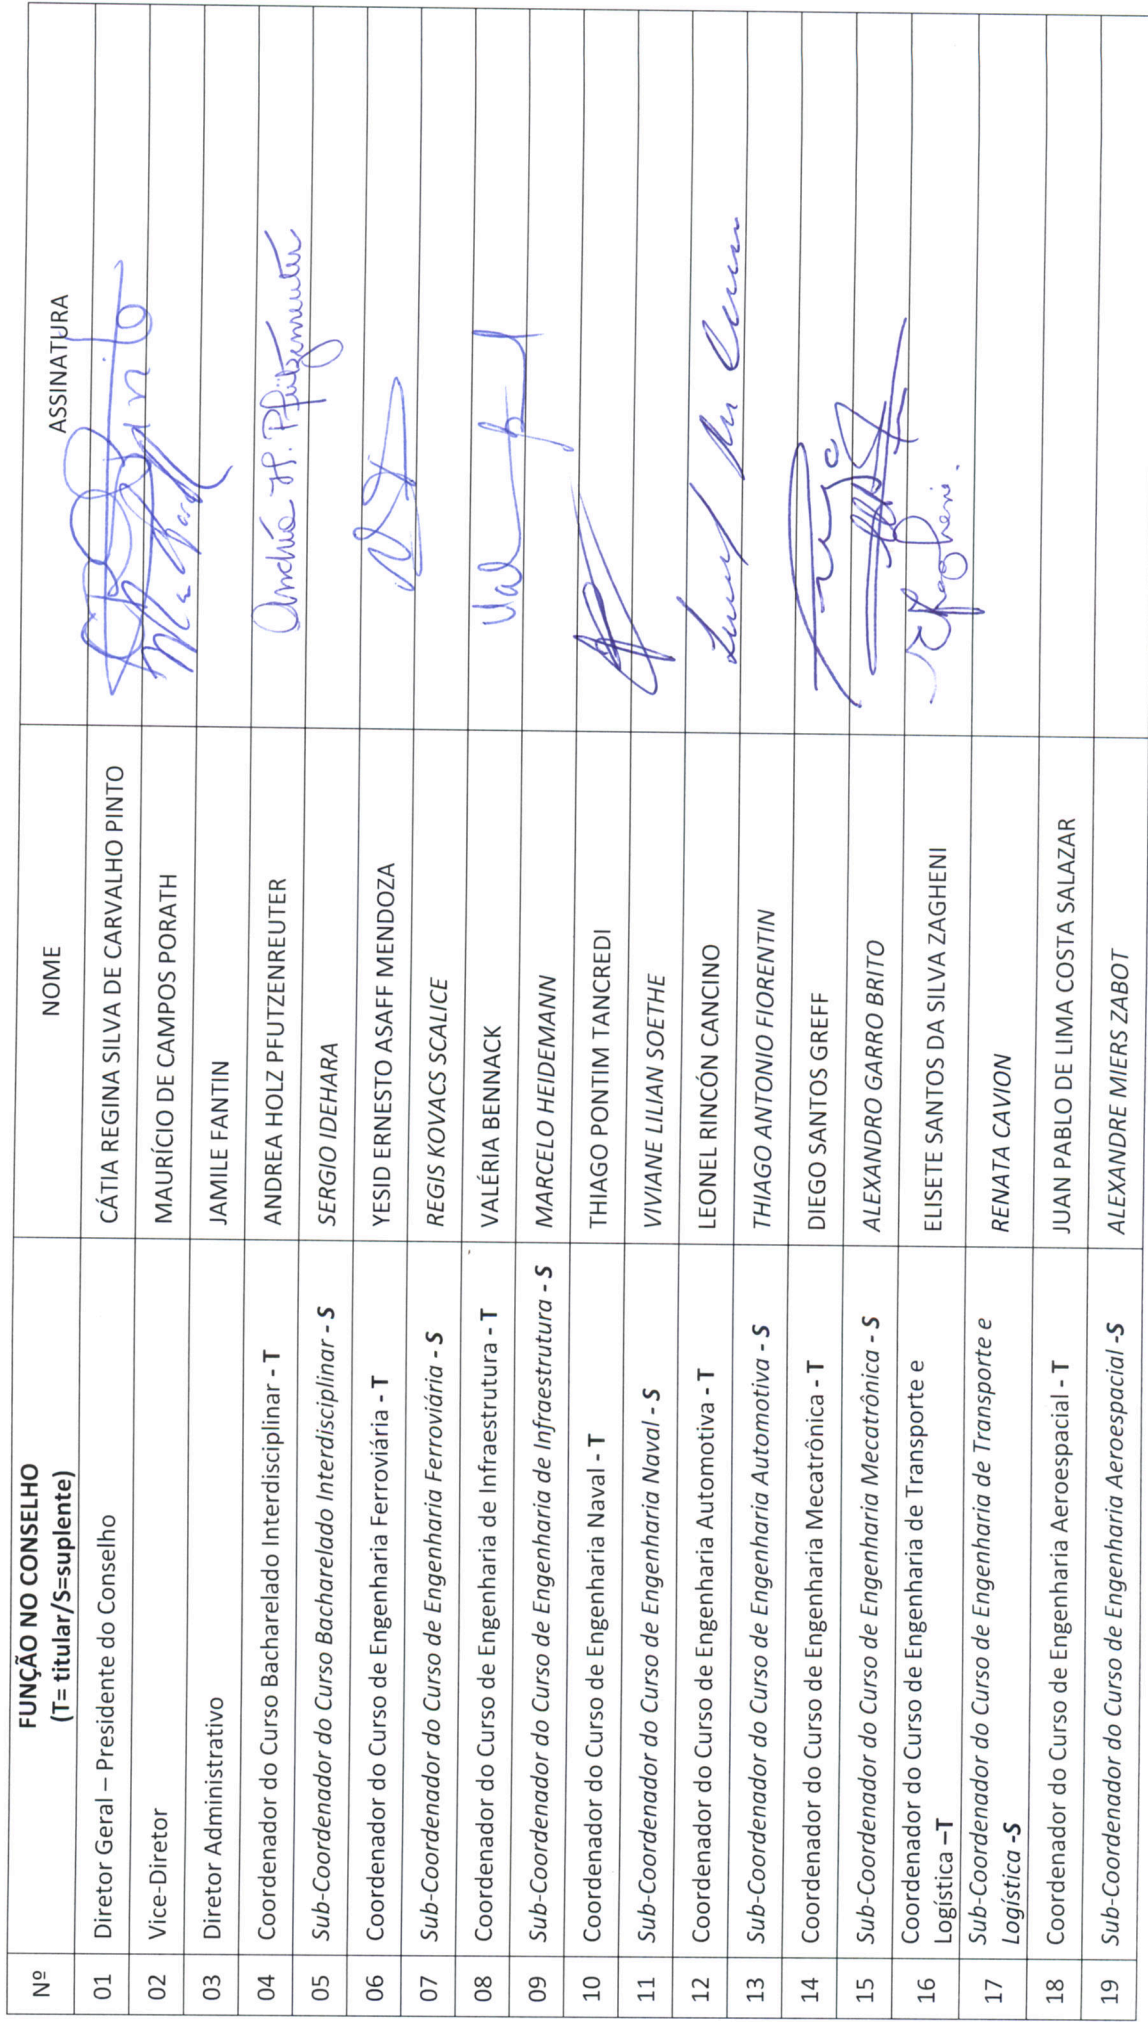 Nº FUNÇÃO NO CONSELHO NOME ASSINATURA
(T= titular/S=suplente)
01 Diretor Geral – Presidente do Conselho CÁTIA REGINA SILVA DE CARVALHO PINTO
02 Vice-Diretor MAURÍCIO DE CAMPOS PORATH
03 Diretor Administrativo JAMILE FANTIN
04 Coordenador do Curso Bacharelado Interdisciplinar - T ANDREA HOLZ PFUTZENREUTER Andréa H. Pfützenreuter
05 Sub-Coordenador do Curso Bacharelado Interdisciplinar - S SERGIO IDEHARA
06 Coordenador do Curso de Engenharia Ferroviária - T YESID ERNESTO ASAFF MENDOZA
07 Sub-Coordenador do Curso de Engenharia Ferroviária - S REGIS KOVACS SCALICE
08 Coordenador do Curso de Engenharia de Infraestrutura - T VALÉRIA BENNACK
09 Sub-Coordenador do Curso de Engenharia de Infraestrutura - S MARCELO HEIDEMANN
10 Coordenador do Curso de Engenharia Naval - T THIAGO PONTIM TANCREDI
11 Sub-Coordenador do Curso de Engenharia Naval - S VIVIANE LILIAN SOETHE
12 Coordenador do Curso de Engenharia Automotiva - T LEONEL RINCÓN CANCINO
13 Sub-Coordenador do Curso de Engenharia Automotiva - S THIAGO ANTONIO FIORENTIN
14 Coordenador do Curso de Engenharia Mecatrônica - T DIEGO SANTOS GREFF
15 Sub-Coordenador do Curso de Engenharia Mecatrônica - S ALEXANDRO GARRO BRITO
16 Coordenador do Curso de Engenharia de Transporte e ELISETE SANTOS DA SILVA ZAGHENI
Logística –T
17 Sub-Coordenador do Curso de Engenharia de Transporte e RENATA CAVION
Logística -S
18 Coordenador do Curso de Engenharia Aeroespacial - T JUAN PABLO DE LIMA COSTA SALAZAR
19 Sub-Coordenador do Curso de Engenharia Aeroespacial -S ALEXANDRE MIERS ZABOT